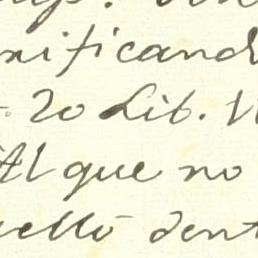 nificand
20 Lib. V
Al que no
uelto dent